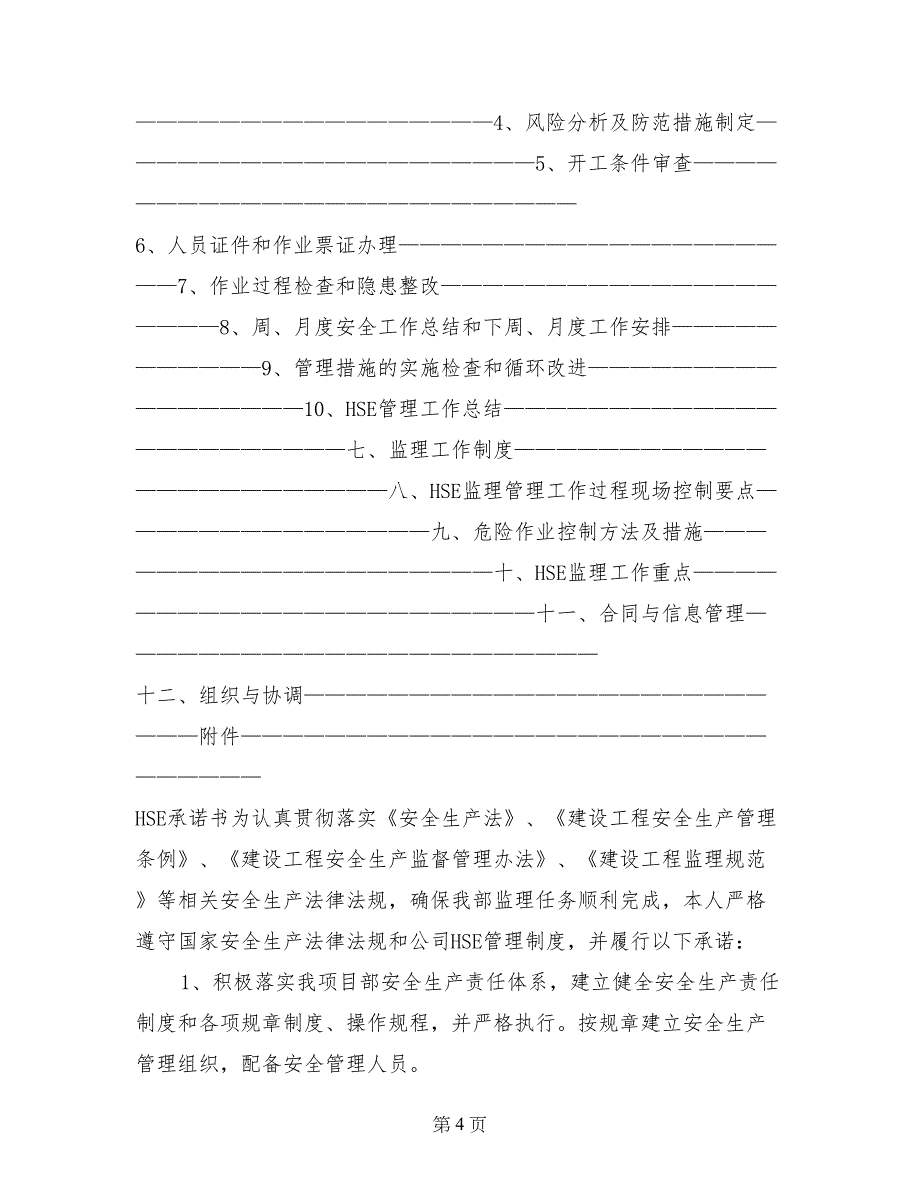 —————————————————4、风险分析及防范措施制定—
———————————————————5、开工条件审查————
—————————————————————
6、人员证件和作业票证办理——————————————————
——7、作业过程检查和隐患整改————————————————
————8、周、月度安全工作总结和下周、月度工作安排—————
——————9、管理措施的实施检查和循环改进—————————
————————10、HSE管理工作总结—————————————
——————————七、监理工作制度————————————
————————————八、HSE监理管理工作过程现场控制要点—
——————————————九、危险作业控制方法及措施———
—————————————————十、HSE监理工作重点————
———————————————————十一、合同与信息管理—
——————————————————————
十二、组织与协调——————————————————————
———附件—————————————————————————
——————
HSE承诺书为认真贯彻落实《安全生产法》、《建设工程安全生产管理
条例》、《建设工程安全生产监督管理办法》、《建设工程监理规范
》等相关安全生产法律法规，确保我部监理任务顺利完成，本人严格
遵守国家安全生产法律法规和公司HSE管理制度，并履行以下承诺：
1、积极落实我项目部安全生产责任体系，建立健全安全生产责任
制度和各项规章制度、操作规程，并严格执行。按规章建立安全生产
管理组织，配备安全管理人员。
第 4 页